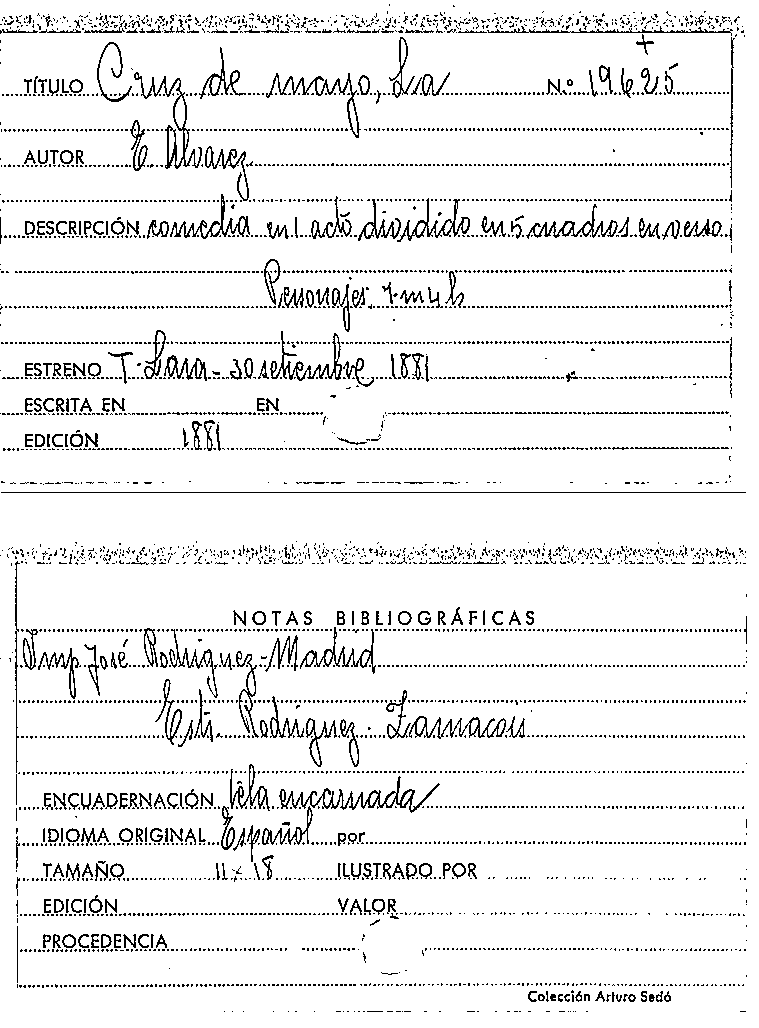 +
TÍTULO Cruz de mayo, La Nº 19625
AUTOR E. Alvarez
DESCRIPCIÓN comedia en 1 acto dividido en 5 cuadros en verso
Personajes. 7 m 4 h
ESTRENO T. Lara - 30 setiembre 1881
ESCRITA EN EN
EDICIÓN 1881
NOTAS BIBLIOGRÁFICAS
Imp José Rodriguez - Madrid
Estr. Rodriguez - Zamacois
ENCUADERNACIÓN tela encarnada
IDIOMA ORIGINAL Español por
TAMAÑO 11 x 18 ILUSTRADO POR
EDICIÓN VALOR
PROCEDENCIA
Colección Arturo Sedó